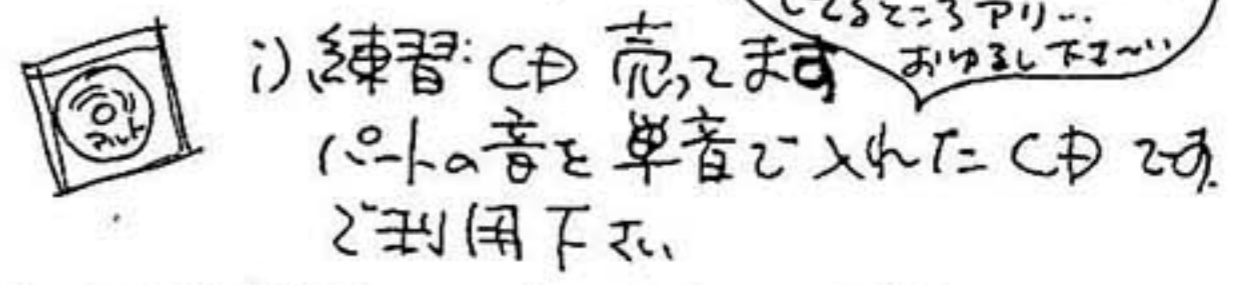 してるところアリ…
おゆるし下さ〜い
i) 練習:CD 売ってます
パートの音を単音で入れたCDです.
ご利用下さい
アルト